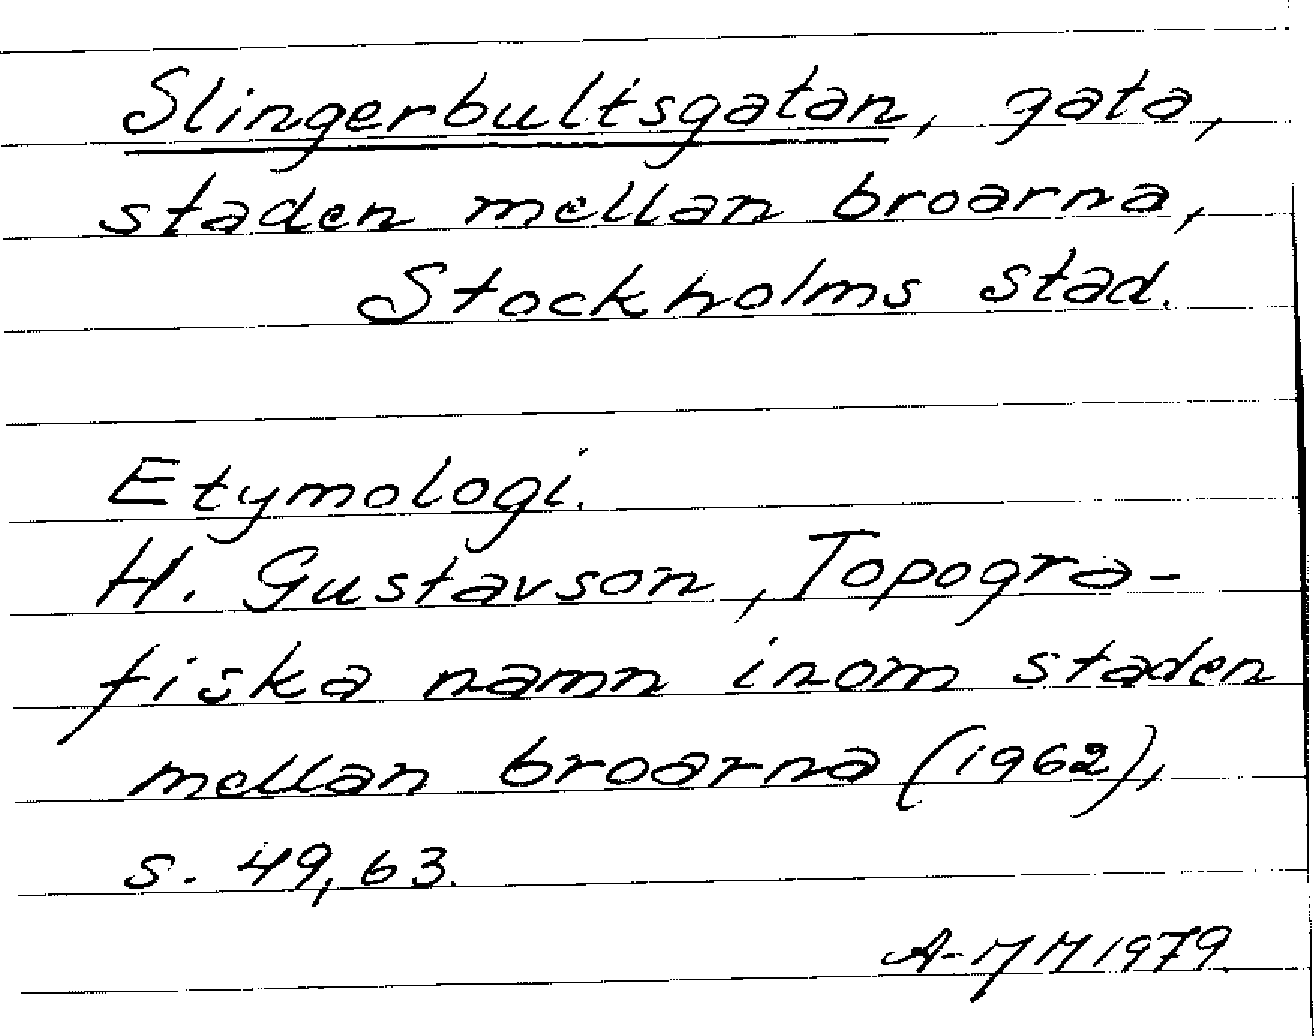 Slingerbultsgatan, gata,
staden mellan broarna,
Stockholms stad.
Etymologi.
H. Gustavson, Topogra-
fiska namn inom staden
mellan broarna (1962),
s. 49, 63.
A-MM 1979.